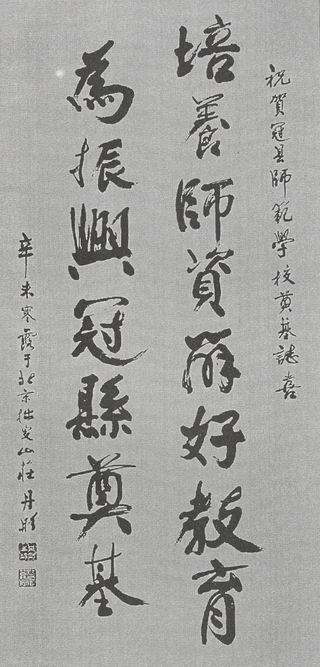 祝賀冠县師範學校奠基誌喜
培養師資辦好教育
為振興冠縣奠基
辛未寒露于北京拙叟山莊丹彤